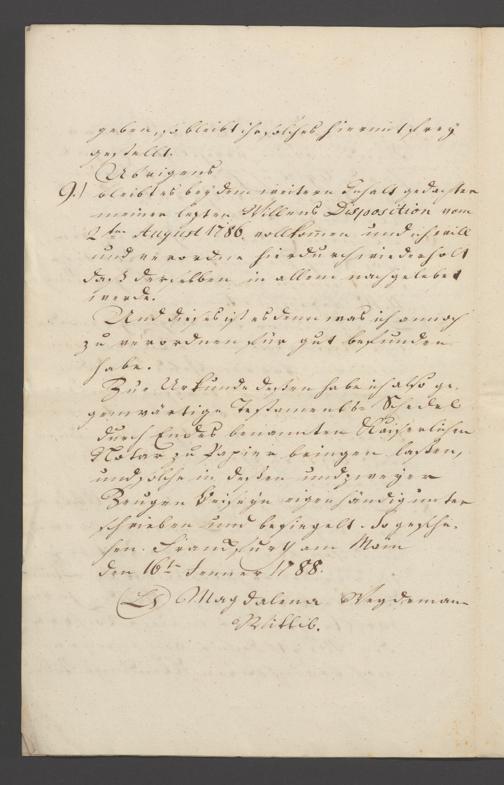 geben, so bleibt ihr solches hiermit frey
gestellt.
Übrigens
9.) bleibt es bey dem weitern Inhalt gedachter
meiner letzten Willens Disposition vom
2ten August 1786. vollkommen und ich will
und verordne hierdurch wiederholt
daß derselben in allem nachgelebet
werde.
Und dieses ist es denn was ich annoch
zu verordnen für gut befunden
habe.
Zur Urkunde dessen habe ich also ge-
genwärtige Testaments-Schedel
durch Endes benannten Kaiserlichen
Notar zu Papier bringen lassen,
und solche in dessen und zweyer
Zeugen Beyseyn eigenhändig unter
schrieben und besiegelt. So gesche-
hen. Frankfurth am Main
den 16ten Jenner 1788.
LS Magdalena Weydemann
Wittib.